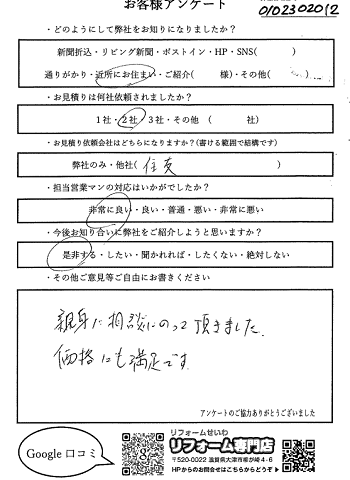 お客様アンケート
0102302012
・どのようにして弊社をお知りになりましたか？
新聞折込・リビング新聞・ポストイン・HP・SNS(　　　)
通りがかり・近所にお住まい・ご紹介(　　　様)・その他(　　　)
・お見積りは何社依頼されましたか？
1社・2社・3社・その他（　　　社）
・お見積り依頼会社はどちらになりますか？(書ける範囲で結構です)
弊社のみ・他社(　住友　)
・担当営業マンの対応はいかがでしたか？
非常に良い・良い・普通・悪い・非常に悪い
・今後お知り合いに弊社をご紹介しようと思いますか？
是非する・したい・聞かれれば・したくない・絶対しない
・その他ご意見等ご自由にお書きください
親身に相談にのって頂きました.
価格にも満足です.
アンケートのご協力ありがとうございました
Google 口コミ
リフォームせいわ
リフォーム専門店
〒520-0022 滋賀県大津市柳が崎4-6
HPからのお問合せはこちらからどうぞ▶